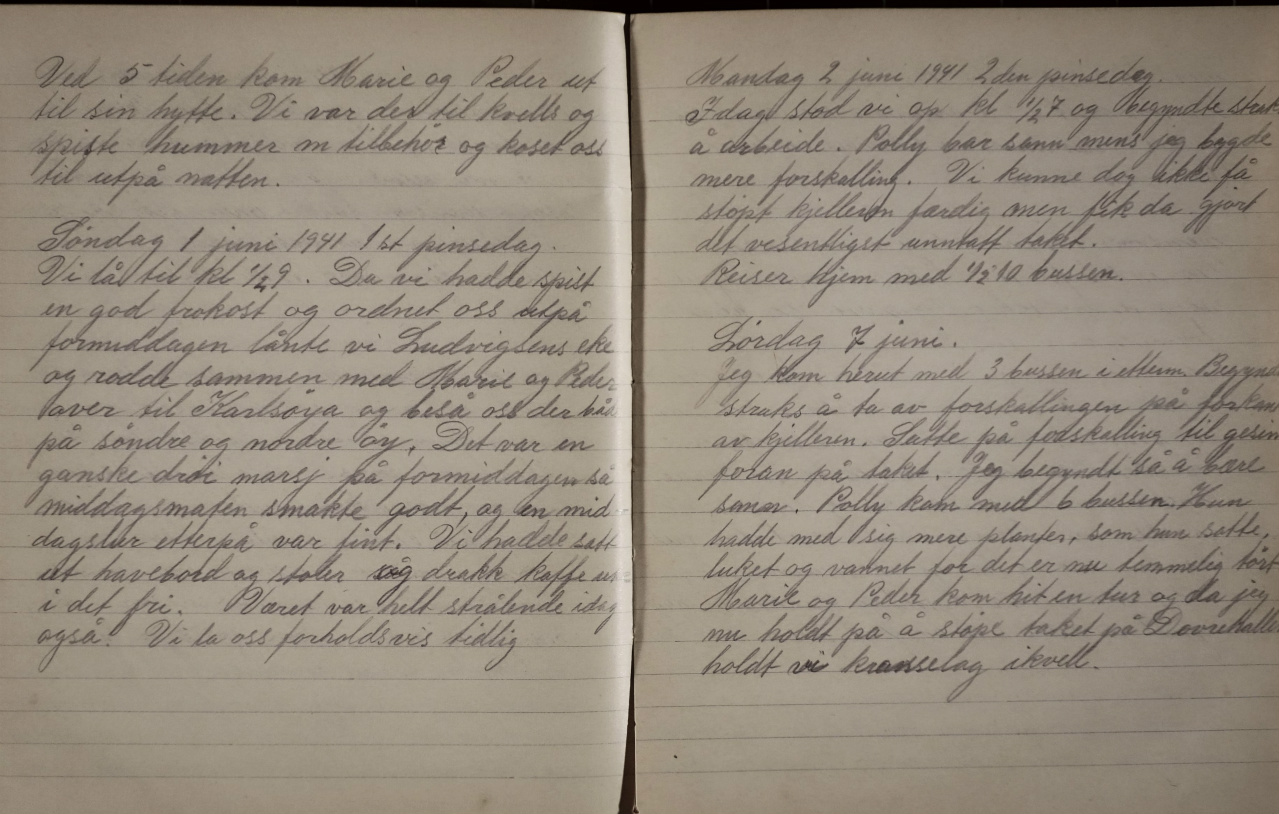 Ved 5 tiden kom Marie og Peder ut
til sin hytte. Vi var der til kvells og
spiste hummer m tilbehör og koset oss
til utpå natten.
Söndag 1 juni 1941 1st pinsedag.
Vi lå til kl 1/2 9. Da vi hadde spist
en god frokost og ordnet oss utpå
formiddagen lånte vi Ludvigsens eke
og rodde sammen med Marie og Peder
over til Karlsöya og beså oss der båd
på söndre og nordre öy. Det var en
ganske dröi marsj på formiddagen så
middagsmaten smakte godt, og en mid-
dagslur etterpå var fint. Vi hadde satt
ut havebord og stoler og drakk kaffe ute
i det fri. Været var helt strålende idag
også. Vi la oss forholdsvis tidlig
Mandag 2 juni 1941 2den pinsedag.
Idag stod vi op kl 1/2 7 og begyndte strak
å arbeide. Polly bar sann mens jeg bygde
mere forskalling. Vi kunne dog ikke få
stöpt kjelleren færdig men fik da gjort
det vesentligst unntatt taket.
Reiser hjem med 1/2 10 bussen.
Lördag 7 juni.
Jeg kom herut med 3 bussen i etterm. Begynd
straks å ta av forskallingen på forkan
av kjelleren. Satte på forskalling til gesim
foran på taket. Jeg begyndt så å bære
sann. Polly kom med 6 bussen. Hun
hadde med sig mere planter, som hun satte,
luket og vannet for det er nu temmelig tört
Marie og Peder kom hit en tur og da jeg
nu holdt på å stöpe taket på Dovrehallen
holdt vi kranselag ikvell.